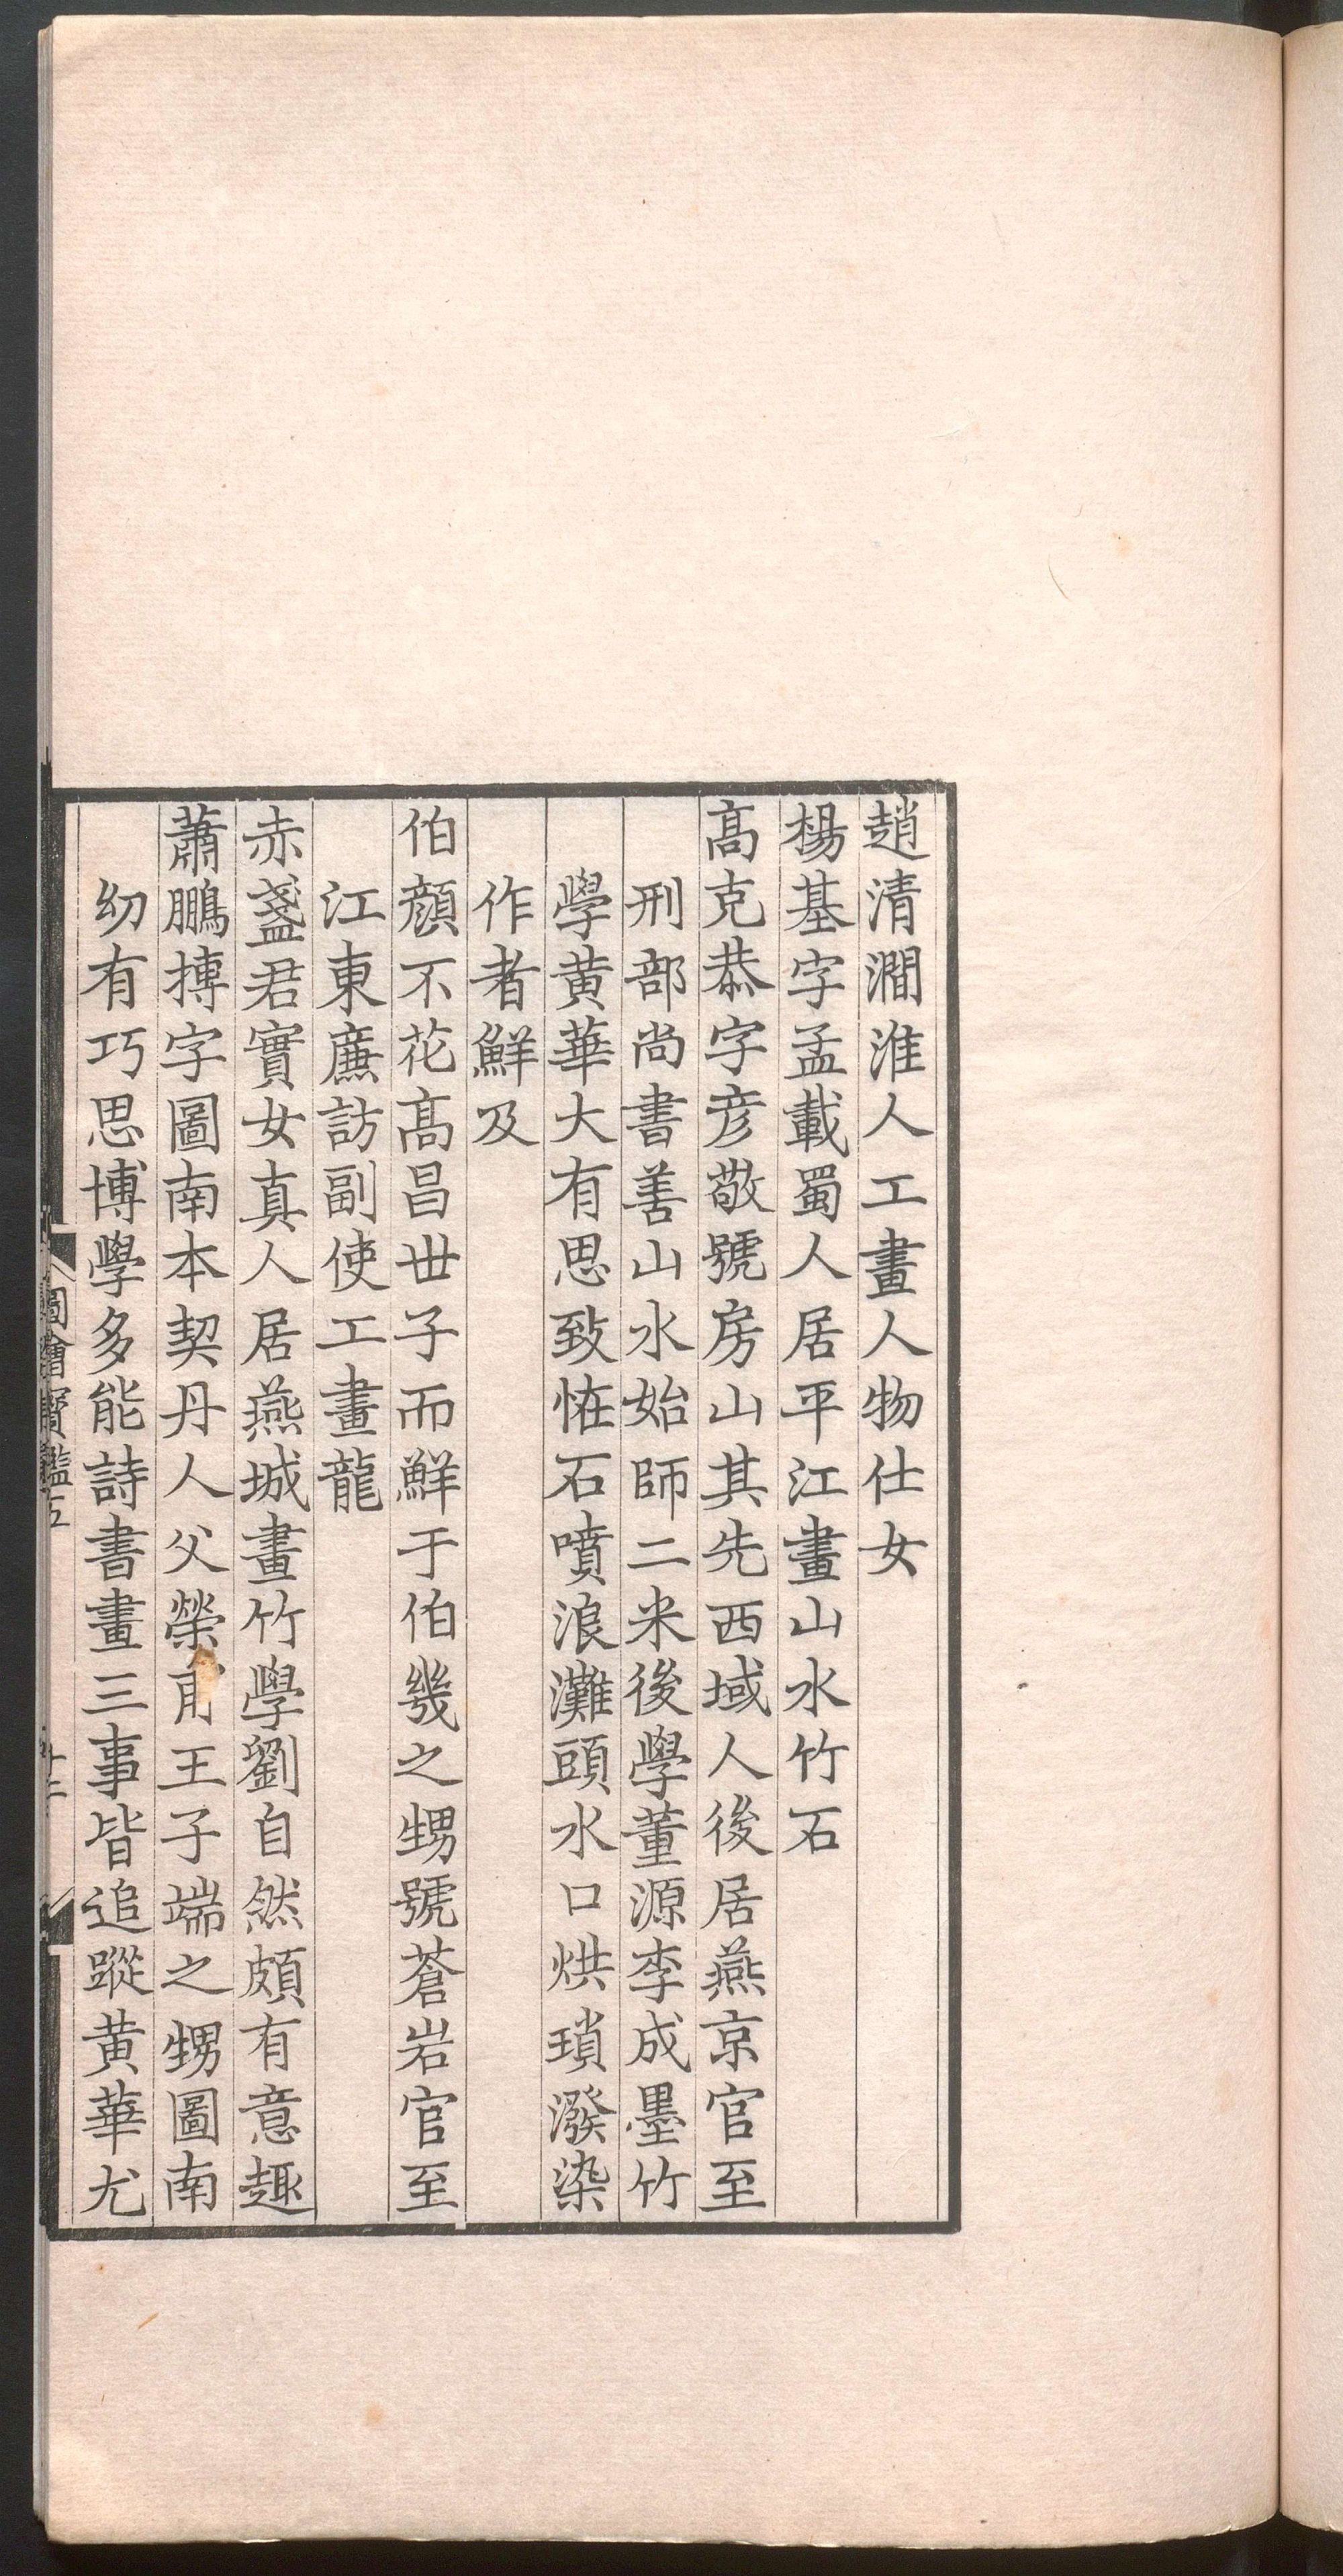 趙清澗淮人工畫人物仕女
楊基字孟載蜀人居平江畫山水竹石
髙克恭字彦敬號房山其先西域人後居燕京官至
刑部尚書善山水始師二米後學董源李成墨竹
學黄華大有思致恠石噴浪灘頭水口烘瑣潑染
作者鮮及
伯顔不花髙昌丗子而鮮于伯幾之甥號蒼岩官至
江東亷訪副使工畫龍
赤盞君實女真人居燕城畫竹學劉自然頗有意趣
蕭鵬摶字圖南本契丹人父榮甫王子端之甥圖南
幼有巧思博學多能詩書畫三事皆追蹤黄華尤
圖繪寳鑑五
十二